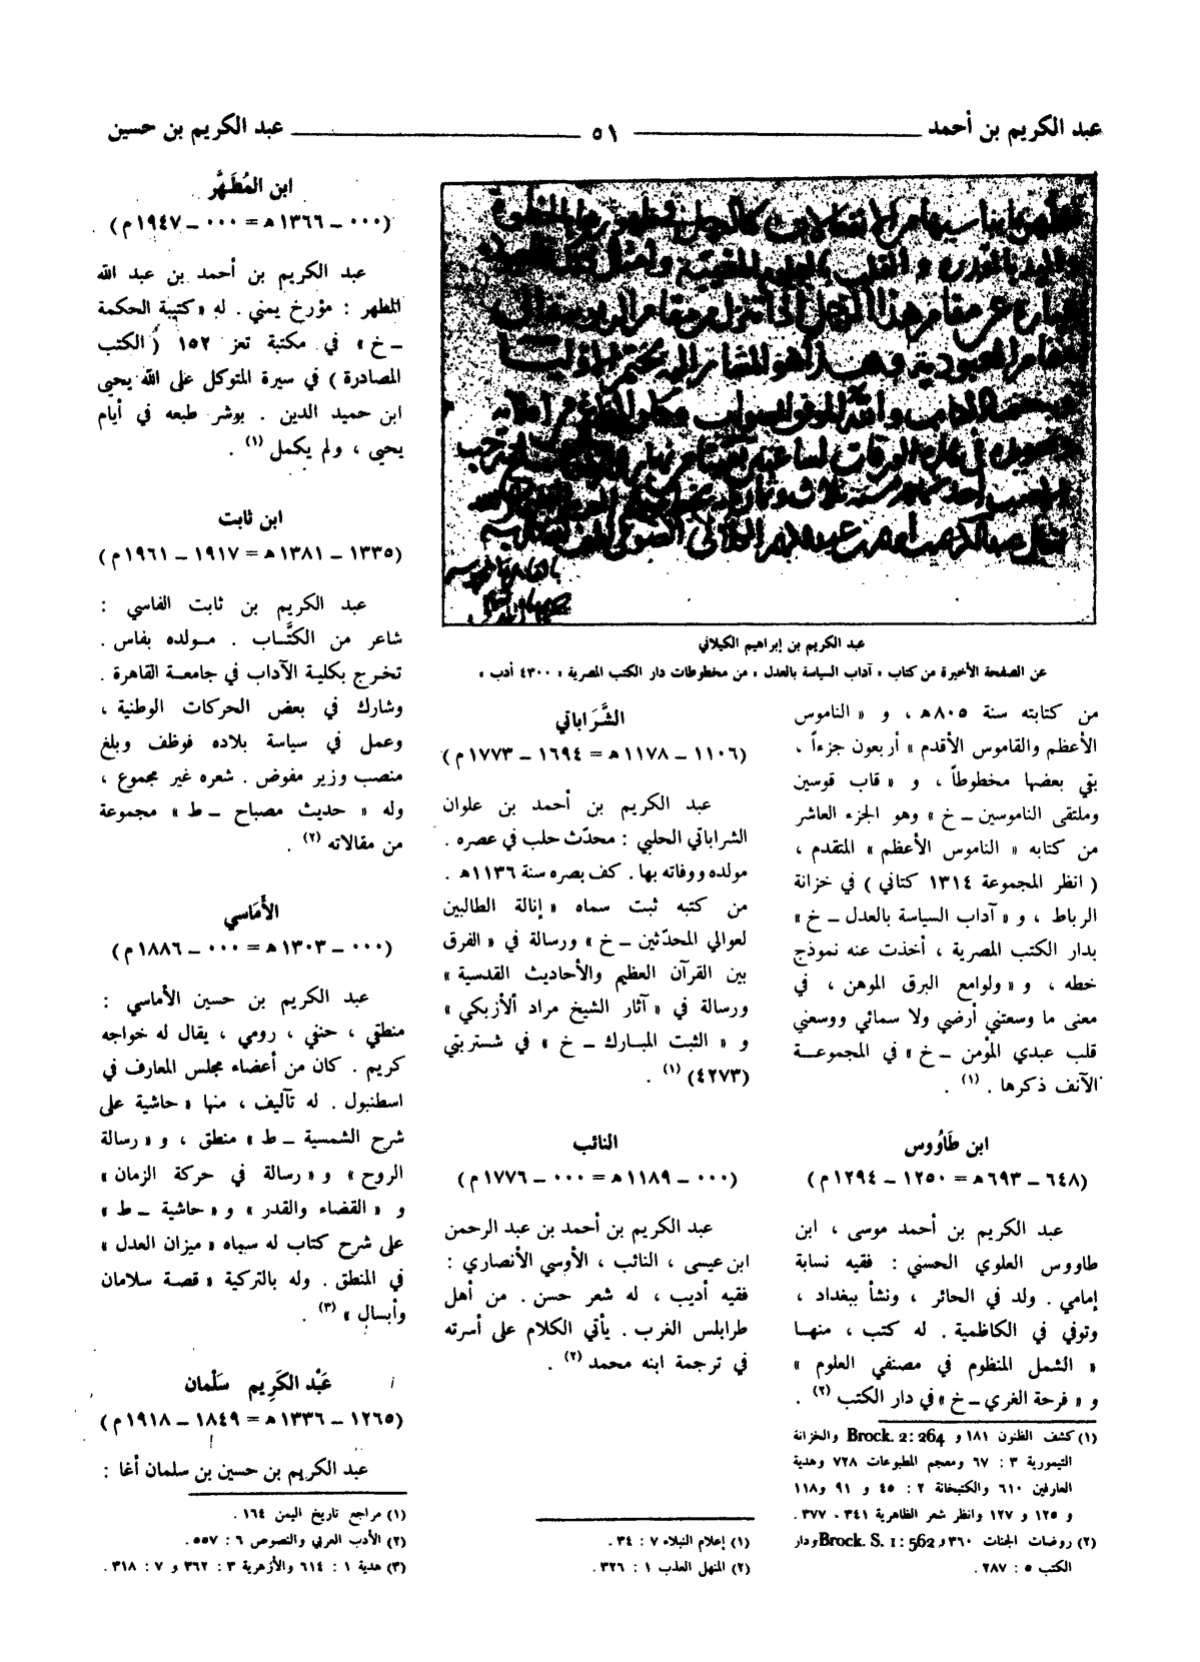 عبد الكريم بن أحمد ٥١ عبد الكريم بن حسين
عبد الكريم بن إبراهيم الكيلاني
عن الصفحة الأخيرة من كتاب « آداب السياسة بالعدل » من مخطوطات دار الكتب المصرية « ٤٣٠٠ أدب »
من كتابته سنة ٨٠٥هـ ، و « الناموس
الأعظم والقاموس الأقدم » أربعون جزءاً ،
بقي بعضها مخطوطاً ، و « قاب قوسين
وملتقى الناموسين ـ خ » وهو الجزء العاشر
من كتابه « الناموس الأعظم » المتقدم ،
( انظر المجموعة ١٣١٤ كتاني ) في خزانة
الرباط ، و « آداب السياسة بالعدل ـ خ »
بدار الكتب المصرية ، أخذت عنه نموذج
خطه ، و « ولوامع البرق الموهن ، في
معنى ما وسعتني أرضي ولا سمائي ووسعني
قلب عبدي المؤمن ـ خ » في المجموعــة
الآنف ذكرها . (١) .
ابن طَاوُوس
(٦٤٨ ـ ٦٩٣هـ = ١٢٥٠ ـ ١٢٩٤م)
عبد الكريم بن أحمد موسى ، ابن
طاووس العلوي الحسني : فقيه نسابة
إمامي . ولد في الحائر ، ونشأ ببغداد ،
وتوفي في الكاظمية . له كتب ، منهـا
« الشمل المنظوم في مصنفي العلوم »
و « فرحة الغري ـ خ » في دار الكتب (٢) .
(١) كشف الظنون ١٨١ و Brock. 2: 264 والخزانة
التيمورية ٣ : ٦٧ ومعجم المطبوعات ٧٢٨ وهدية
العارفين ٦١٠ والكتبخانة ٢ : ٤٥ و ٩١ و١١٨
و ١٢٥ و ١٢٧ وانظر شعر الظاهرية ٣٤١ ، ٣٧٧ .
(٢) روضات الجنات ٣٦٠ و Brock. S. 1: 562 ودار
الكتب ٥ : ٢٨٧ .
الشَّرَاباتي
(١١٠٦ ـ ١١٧٨هـ = ١٦٩٤ ـ ١٧٧٣م)
عبد الكريم بن أحمد بن علوان
الشراباتي الحلبي : محدّث حلب في عصره .
مولده ووفاته بها . كف بصره سنة ١١٣٦هـ .
من كتبه ثبت سماه « إنالة الطالبين
لعوالي المحدّثين ـ خ » ورسالة في « الفرق
بين القرآن العظيم والأحاديث القدسية »
ورسالة في « آثار الشيخ مراد الأزبكي »
و « الثبت المبـارك ـ خ » في شستربتي
(٤٢٧٣) (١) .
النائب
(٠٠٠ ـ ١١٨٩هـ = ٠٠٠ ـ ١٧٧٦م)
عبد الكريم بن أحمد بن عبد الرحمن
ابن عيسى ، النائب ، الأوسي الأنصاري :
فقيه أديب ، له شعر حسن . من أهل
طرابلس الغرب . يأتي الكلام على أسرته
في ترجمة ابنه محمد (٢) .
(١) إعلام النبلاء ٧ : ٣٤ .
(٢) المنهل العذب ١ : ٣٢٦ .
ابن المُطَهَّر
(٠٠٠ ـ ١٣٦٦هـ = ٠٠٠ ـ ١٩٤٧م)
عبد الكريم بن أحمد بن عبد الله
المطهر : مؤرخ يمني . له « كتيبة الحكمة
ـ خ » في مكتبة تعز ١٥٢ ( الكتب
المصادرة ) في سيرة المتوكل على الله يحيى
ابن حميد الدين . بوشر طبعه في أيام
يحيى ، ولم يكمل (١) .
ابن ثابت
(١٣٣٥ ـ ١٣٨١هـ = ١٩١٧ ـ ١٩٦١م)
عبد الكريم بن ثابت الفاسي :
شاعر من الكتَّـاب . مـولده بفاس .
تخرج بكلية الآداب في جامعـة القاهرة .
وشارك في بعض الحركات الوطنية ،
وعمل في سياسة بلاده فوظف وبلغ
منصب وزير مفوض . شعره غير مجموع ،
وله « حديث مصباح ـ ط » مجموعة
من مقالاته (٢) .
الأَمَاسي
(٠٠٠ ـ ١٣٠٣هـ = ٠٠٠ ـ ١٨٨٦م)
عبد الكريم بن حسين الأماسي :
منطقي ، حنفي ، رومي ، يقال له خواجه
كريم . كان من أعضاء مجلس المعارف في
اسطنبول . له تآليف ، منها « حاشية على
شرح الشمسية ـ ط » منطق ، و « رسالة
الروح » و « رسالة في حركة الزمان »
و « القضاء والقدر » و « حاشية ـ ط »
على شرح كتاب له سماه « ميزان العدل »
في المنطق . وله بالتركية « قصة سلامان
وأبسال » (٣) .
عَبْد الكَرِيم سَلْمان
(١٢٦٥ ـ ١٣٣٦هـ = ١٨٤٩ ـ ١٩١٨م)
عبد الكريم بن حسين بن سلمان أغا :
(١) مراجع تاريخ اليمن ١٦٤ .
(٢) الأدب العربي والنصوص ٦ : ٥٥٧ .
(٣) هدية ١ : ٦١٤ والأزهرية ٣ : ٣٦٢ و ٧ : ٣١٨ .